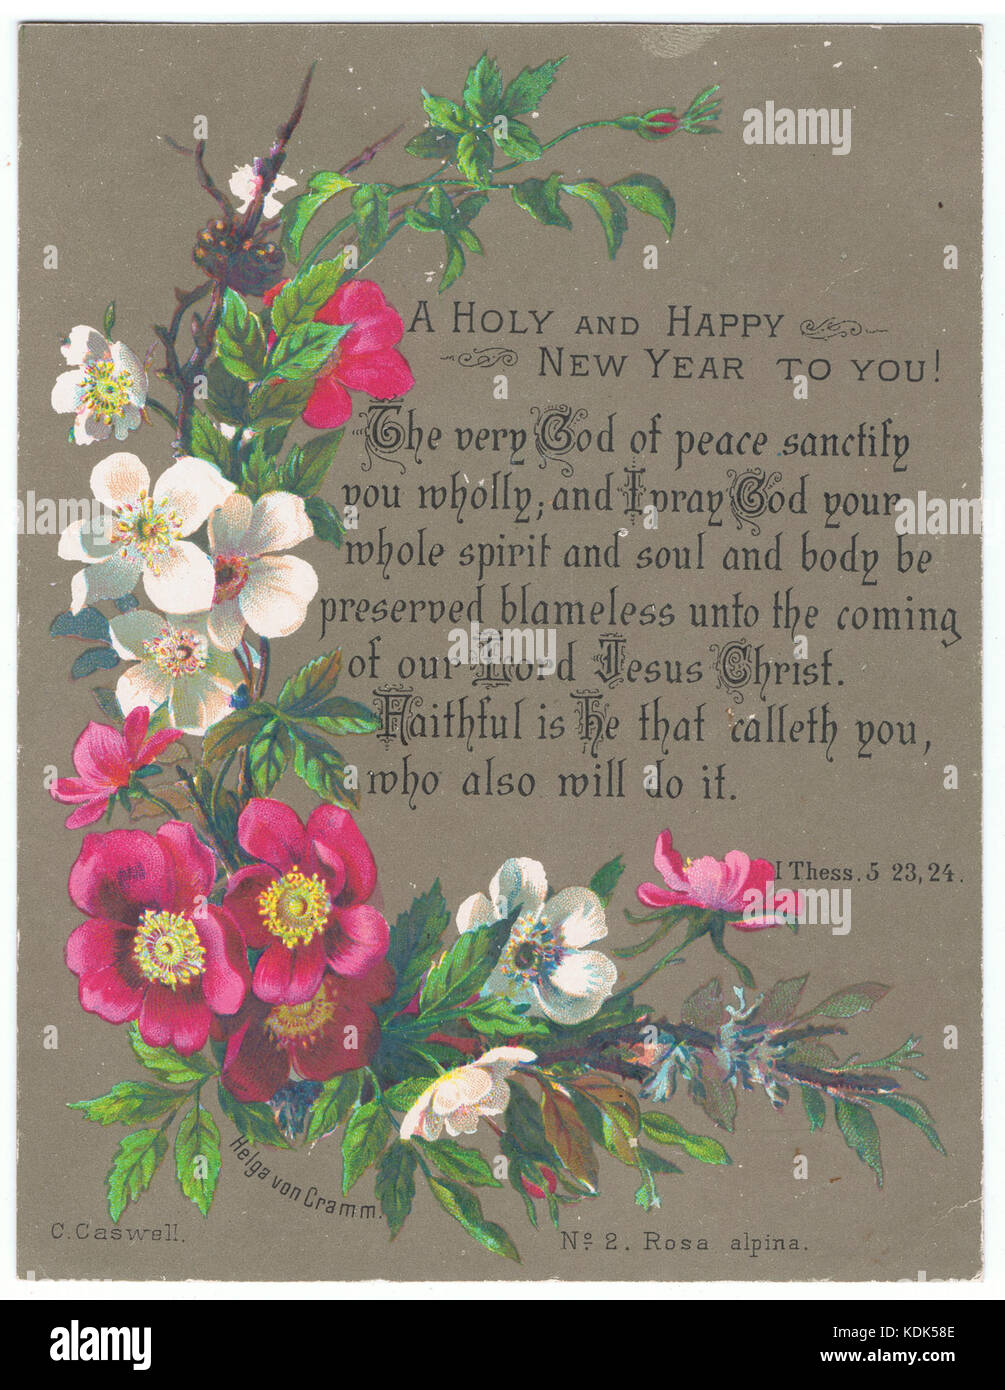 A HOLY AND HAPPY
NEW YEAR TO YOU!
The very God of peace sanctify
you wholly; and I pray God your
whole spirit and soul and body be
preserved blameless unto the coming
of our Lord Jesus Christ.
Faithful is He that calleth you,
who also will do it.
I Thess. 5 23, 24.
Helga von Cramm.
C. Caswell.
Nº 2. Rosa alpina.
alamy
Image ID: KDK58E
www.alamy.com